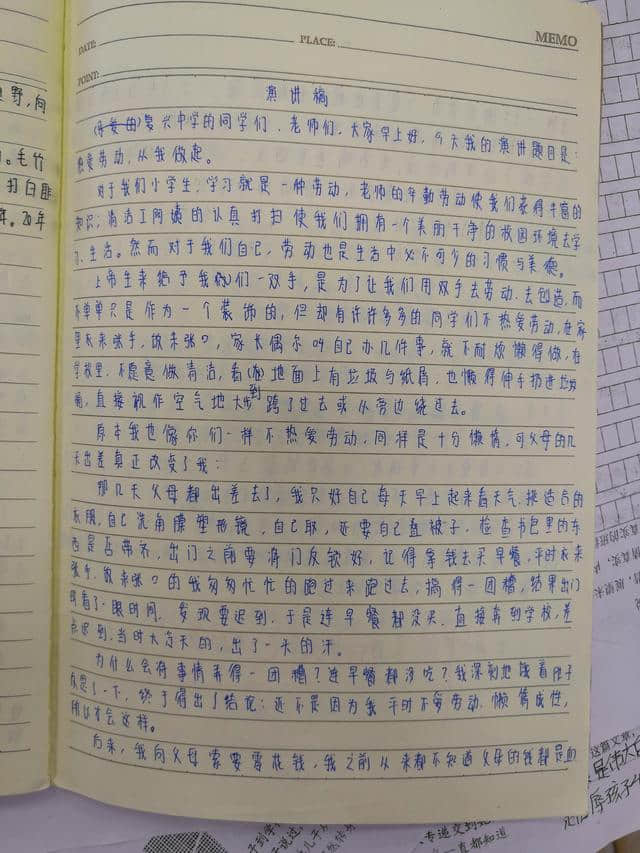 MEMO
DATE:
PLACE:
POINT:
演讲稿
(亲爱的)复兴中学的同学们、老师们,大家早上好,今天我的演讲题目是:
热爱劳动,从我做起。
对于我们小学生,学习就是一种劳动,老师的辛勤劳动使我们获得丰富的
知识;清洁工阿姨的认真打扫使我们拥有一个美丽干净的校园环境去学
习、生活。然而对于我们自己,劳动也是生活中必不可少的习惯与美德。
上帝生来给予我们一双手,是为了让我们用双手去劳动、去创造,而
不单单只是作为一个装饰的,但却有许许多多的同学们不热爱劳动,在家
里衣来张手,饭来张口,家长偶尔叫自己办几件事,就不耐烦懒得做,在
学校里,不愿意做清洁,看到地面上有垃圾与纸屑,也懒得伸手扔进垃圾
桶,直接视作空气地大步跨了过去或从旁边绕过去。
原本我也像你们一样不热爱劳动,同样是十分懒惰,可父母的几
天出差真正改变了我:
那几天父母都出差去了,我只好自己每天早上起来看天气,挑选合适的
衣服,自己洗角膜塑形镜,自己取,还要自己叠被子,检查书包里的东
西是否带齐,出门之前要将门反锁好,记得拿钱去买早餐,平时衣来
张手,饭来张口的我匆匆忙忙的跑过来跑过去,搞得一团糟,结果出门
时看了一眼时间,发现要迟到,于是连早餐都没买,直接奔到学校,差
点迟到,当时大冷天的,出了一头的汗。
为什么会将事情弄得一团糟?连早餐都没吃?我深刻地饿着肚子
反思了一下,终于得出了结论:还不是因为我平时不够劳动,懒惰成性,
所以才会这样。
后来,我向父母索要零花钱,我之前从来都不知道父母的钱都是血
野,向
毛竹
打白
20年
这篇文章
是伟大
专递交到
一直都知道